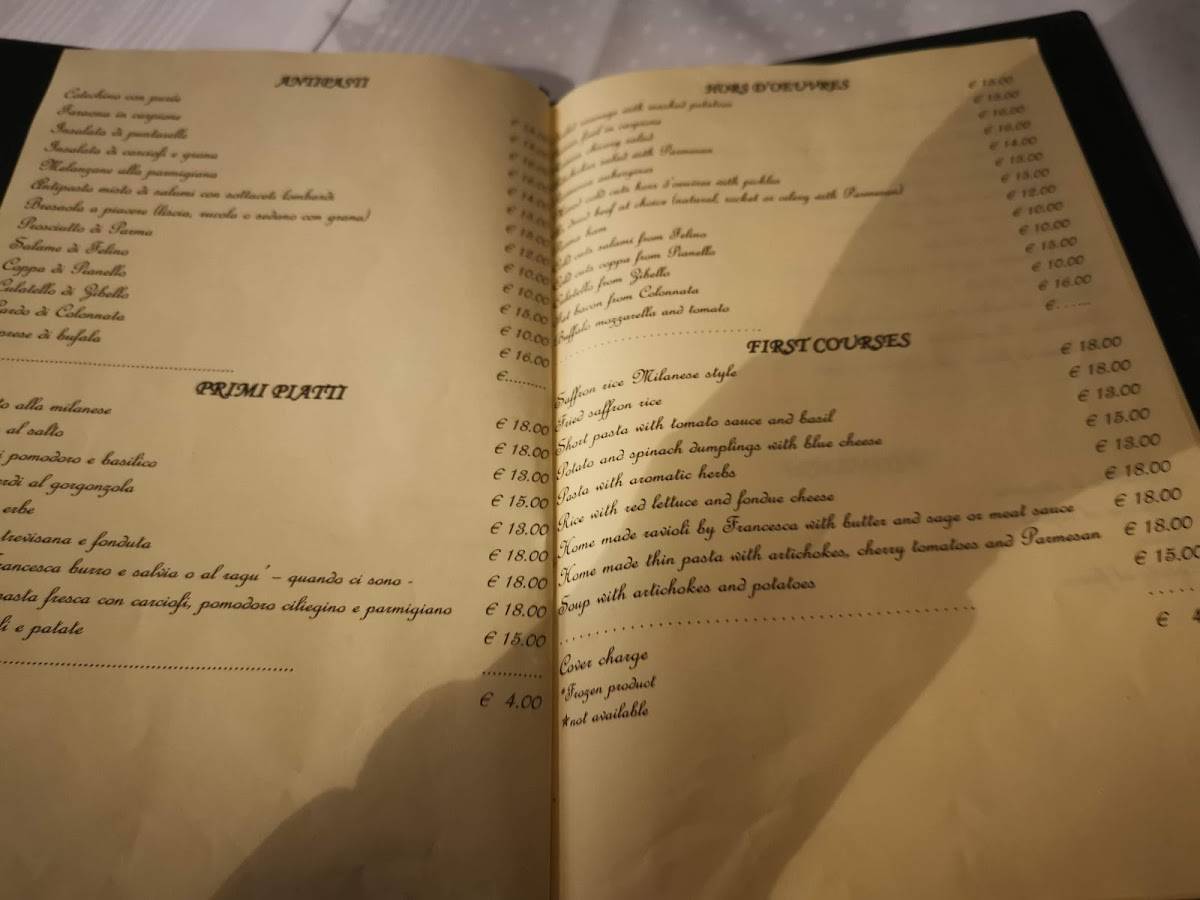 ANTIPASTI
Cotechino con purée
Faraona in carpione
Insalata di puntarelle
Insalata di carciofi e grana
Melanzane alla parmigiana
Antipasto misto di salumi con sottaceti lombardi
Bresaola a piacere (liscia, rucola o sedano con grana)
Prosciutto di Parma
Salame di Felino
Coppa di Pianello
Culatello di Zibello
Lardo di Colonnata
di bufala
€ 14.00
€ 15.00
€ 15.00
€ 12.00
€ 10.00
€ 10.00
€ 15.00
€ 10.00
€ 16.00
€..........
PRIMI PIATTI
alla milanese € 18.00
al salto € 18.00
pomodoro e basilico € 13.00
al gorgonzola € 15.00
erbe € 13.00
trevisana e fonduta € 18.00
Francesca burro e salvia o al ragu' – quando ci sono - € 18.00
pasta fresca con carciofi, pomodoro ciliegino e parmigiano € 18.00
e patate € 15.00
€ 4.00
HORS D'OEUVRES
sausage with mashed potatoes € 15.00
in carpione € 15.00
chicory salad € 16.00
salad with Parmesan € 16.00
€ 14.00
cold cuts hors d'oeuvres with pickles € 15.00
beef at choice (natural, rocket or celery with Parmesan) € 15.00
ham € 12.00
cuts salami from Felino € 10.00
cuts coppa from Pianello € 10.00
Culatello from Zibello € 15.00
bacon from Colonnata € 10.00
Buffalo mozzarella and tomato € 16.00
€......
FIRST COURSES
Saffron rice Milanese style € 18.00
Fried saffron rice € 18.00
Short pasta with tomato sauce and basil € 13.00
Potato and spinach dumplings with blue cheese € 15.00
Pasta with aromatic herbs € 13.00
Rice with red lettuce and fondue cheese € 18.00
Home made ravioli by Francesca with butter and sage or meat sauce € 18.00
Home made thin pasta with artichokes, cherry tomatoes and Parmesan € 18.00
Soup with artichokes and potatoes € 15.00
Cover charge €
*Frozen product
★not available